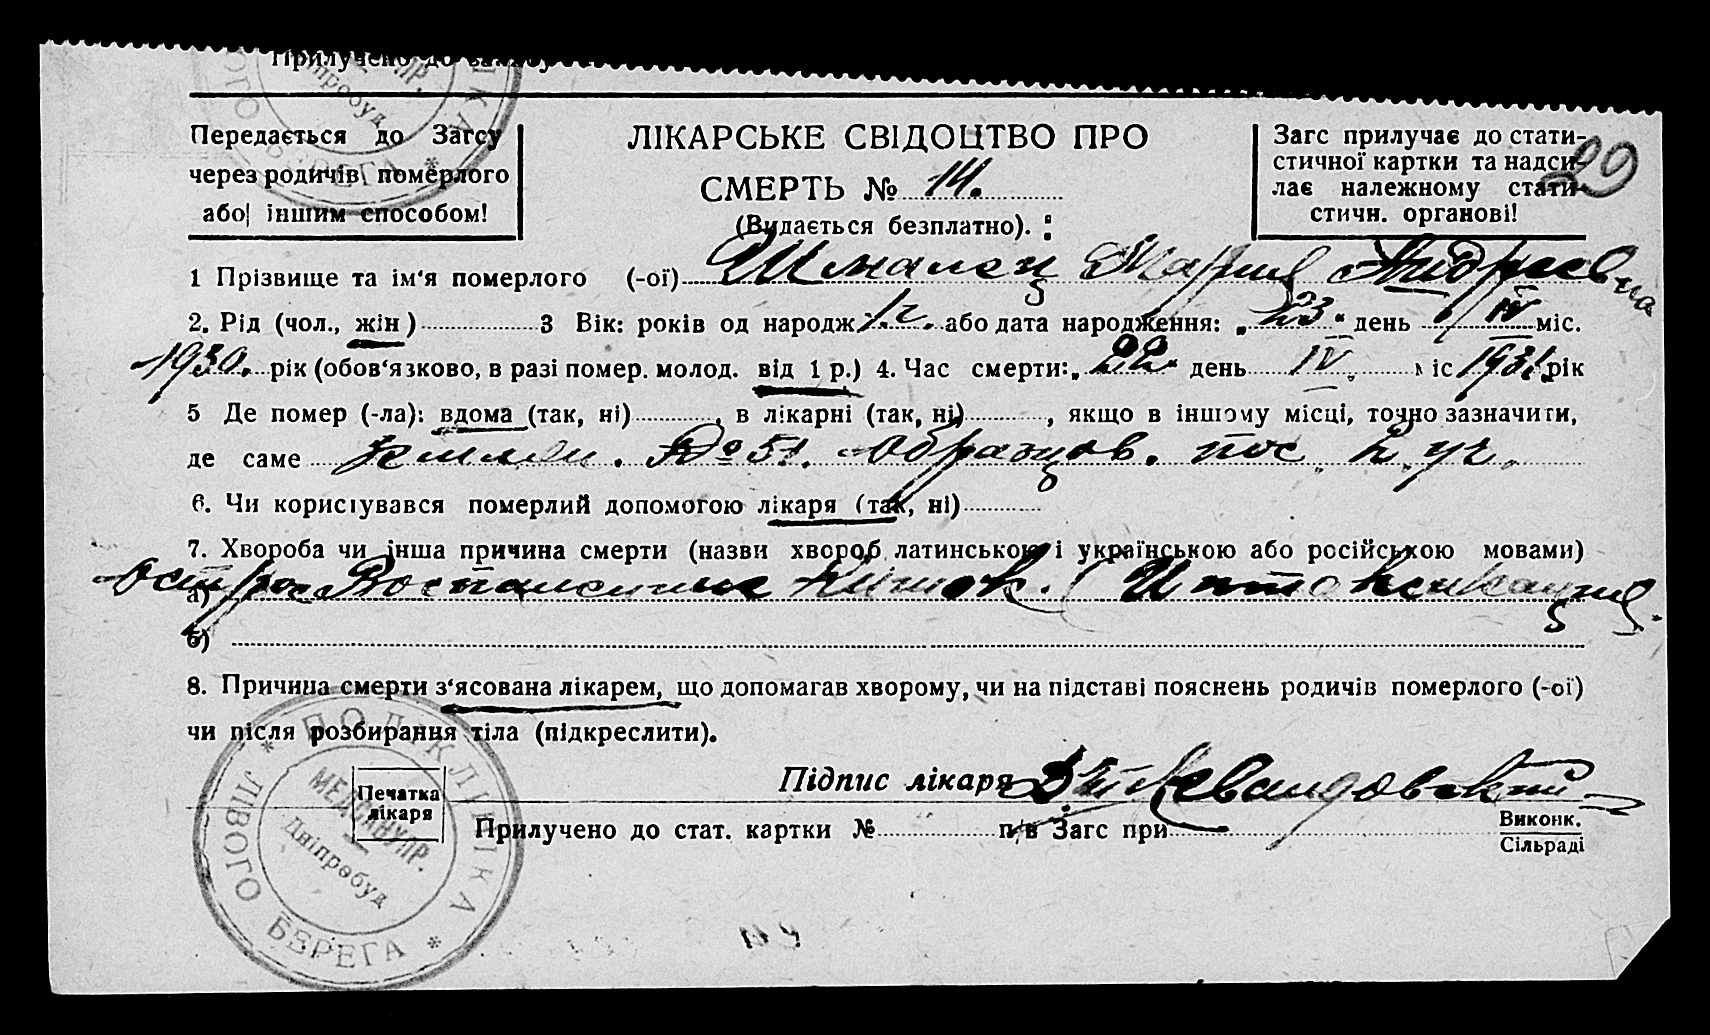 Прилучено до
Передається до Загсу
через родичів померлого
або іншим способом!
ЛІКАРСЬКЕ СВІДОЦТВО ПРО
СМЕРТЬ № 14.
(Видається безплатно).
Загс прилучає до стати-
стичної картки та надси-
лає належному стати-
стичн. органові!
29
1 Прізвище та ім'я померлого (-ої) Шмалец Мария Андриевна
2. Рід (чол., жін) 3 Вік: років од народж 1 г. або дата народження: „23“ день IV міс.
1930. рік (обов'язково, в разі помер. молод. від 1 р.) 4. Час смерти: „22“ день IV міс 1931 рік
5 Де помер (-ла): вдома (так, ні), в лікарні (так, ні), якщо в іншому місці, точно зазначити,
де саме землян. № 51. Образцов. пос. 2 уч.
6. Чи користувався померлий допомогою лікаря (так, ні)
7. Хвороба чи інша причина смерти (назви хвороб латинською і українською або російською мовами)
а) Острое Воспаление Кишок. (Интоксикация
б)
8. Причина смерти з'ясована лікарем, що допомагав хворому, чи на підставі пояснень родичів померлого (-ої)
чи після розбирання тіла (підкреслити).
Підпис лікаря Левандовский
Печатка
лікаря
Прилучено до стат. картки № п/в Загс при
Виконк.
Сільраді
ПОЛІКЛІНІКА
ЛІВОГО БЕРЕГА
МЕДСАНУПР.
Дніпробуд